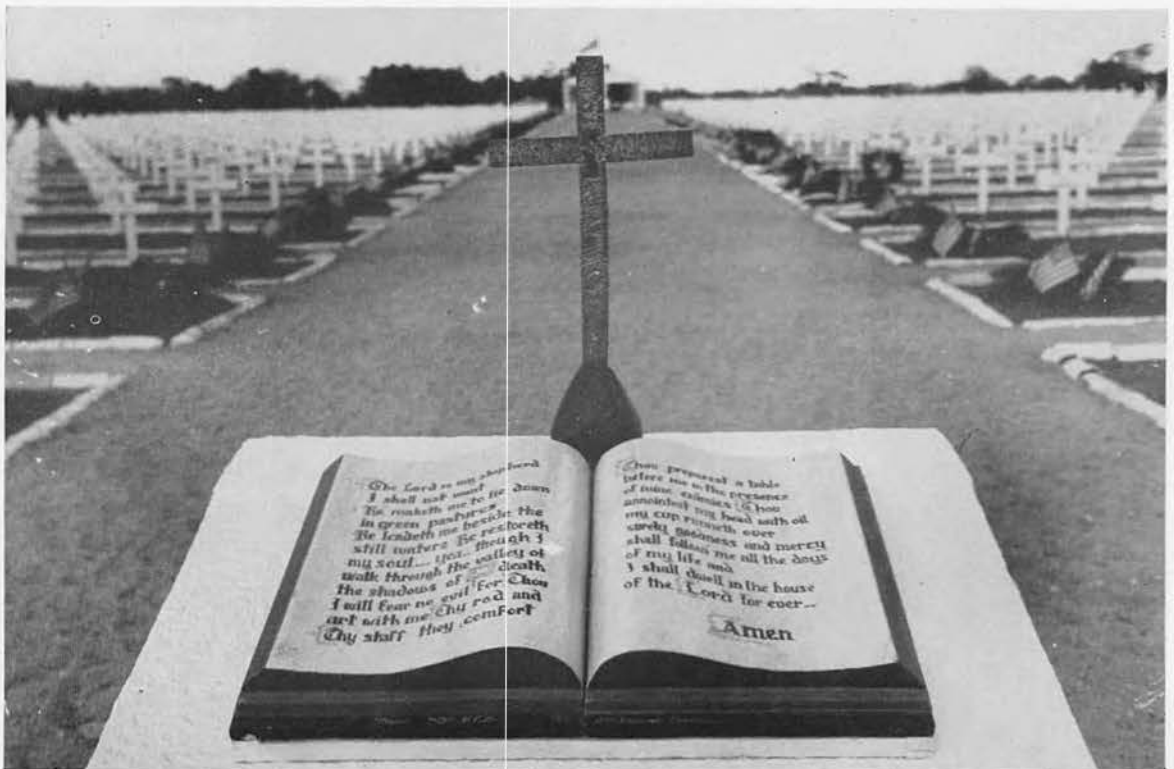 The Lord is my shepherd
I shall not want
He maketh me to lie down
in green pastures
He leadeth me beside the
still waters He restoreth
my soul.... yea.. though I
walk through the valley of
the shadows of death
I will fear no evil for Thou
art with me Thy rod and
Thy staff they comfort
Thou preparest a table
before me in the presence
of mine enemies Thou
annointest my head with oil
my cup runneth over
surely goodness and mercy
shall follow me all the days
of my life and
I shall dwell in the house
of the Lord for ever...
Amen